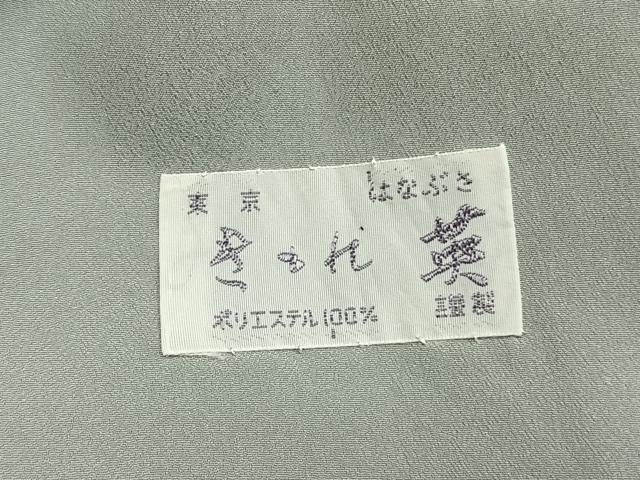 東京
はなぶさ
きもの英
ポリエステル100%
謹製